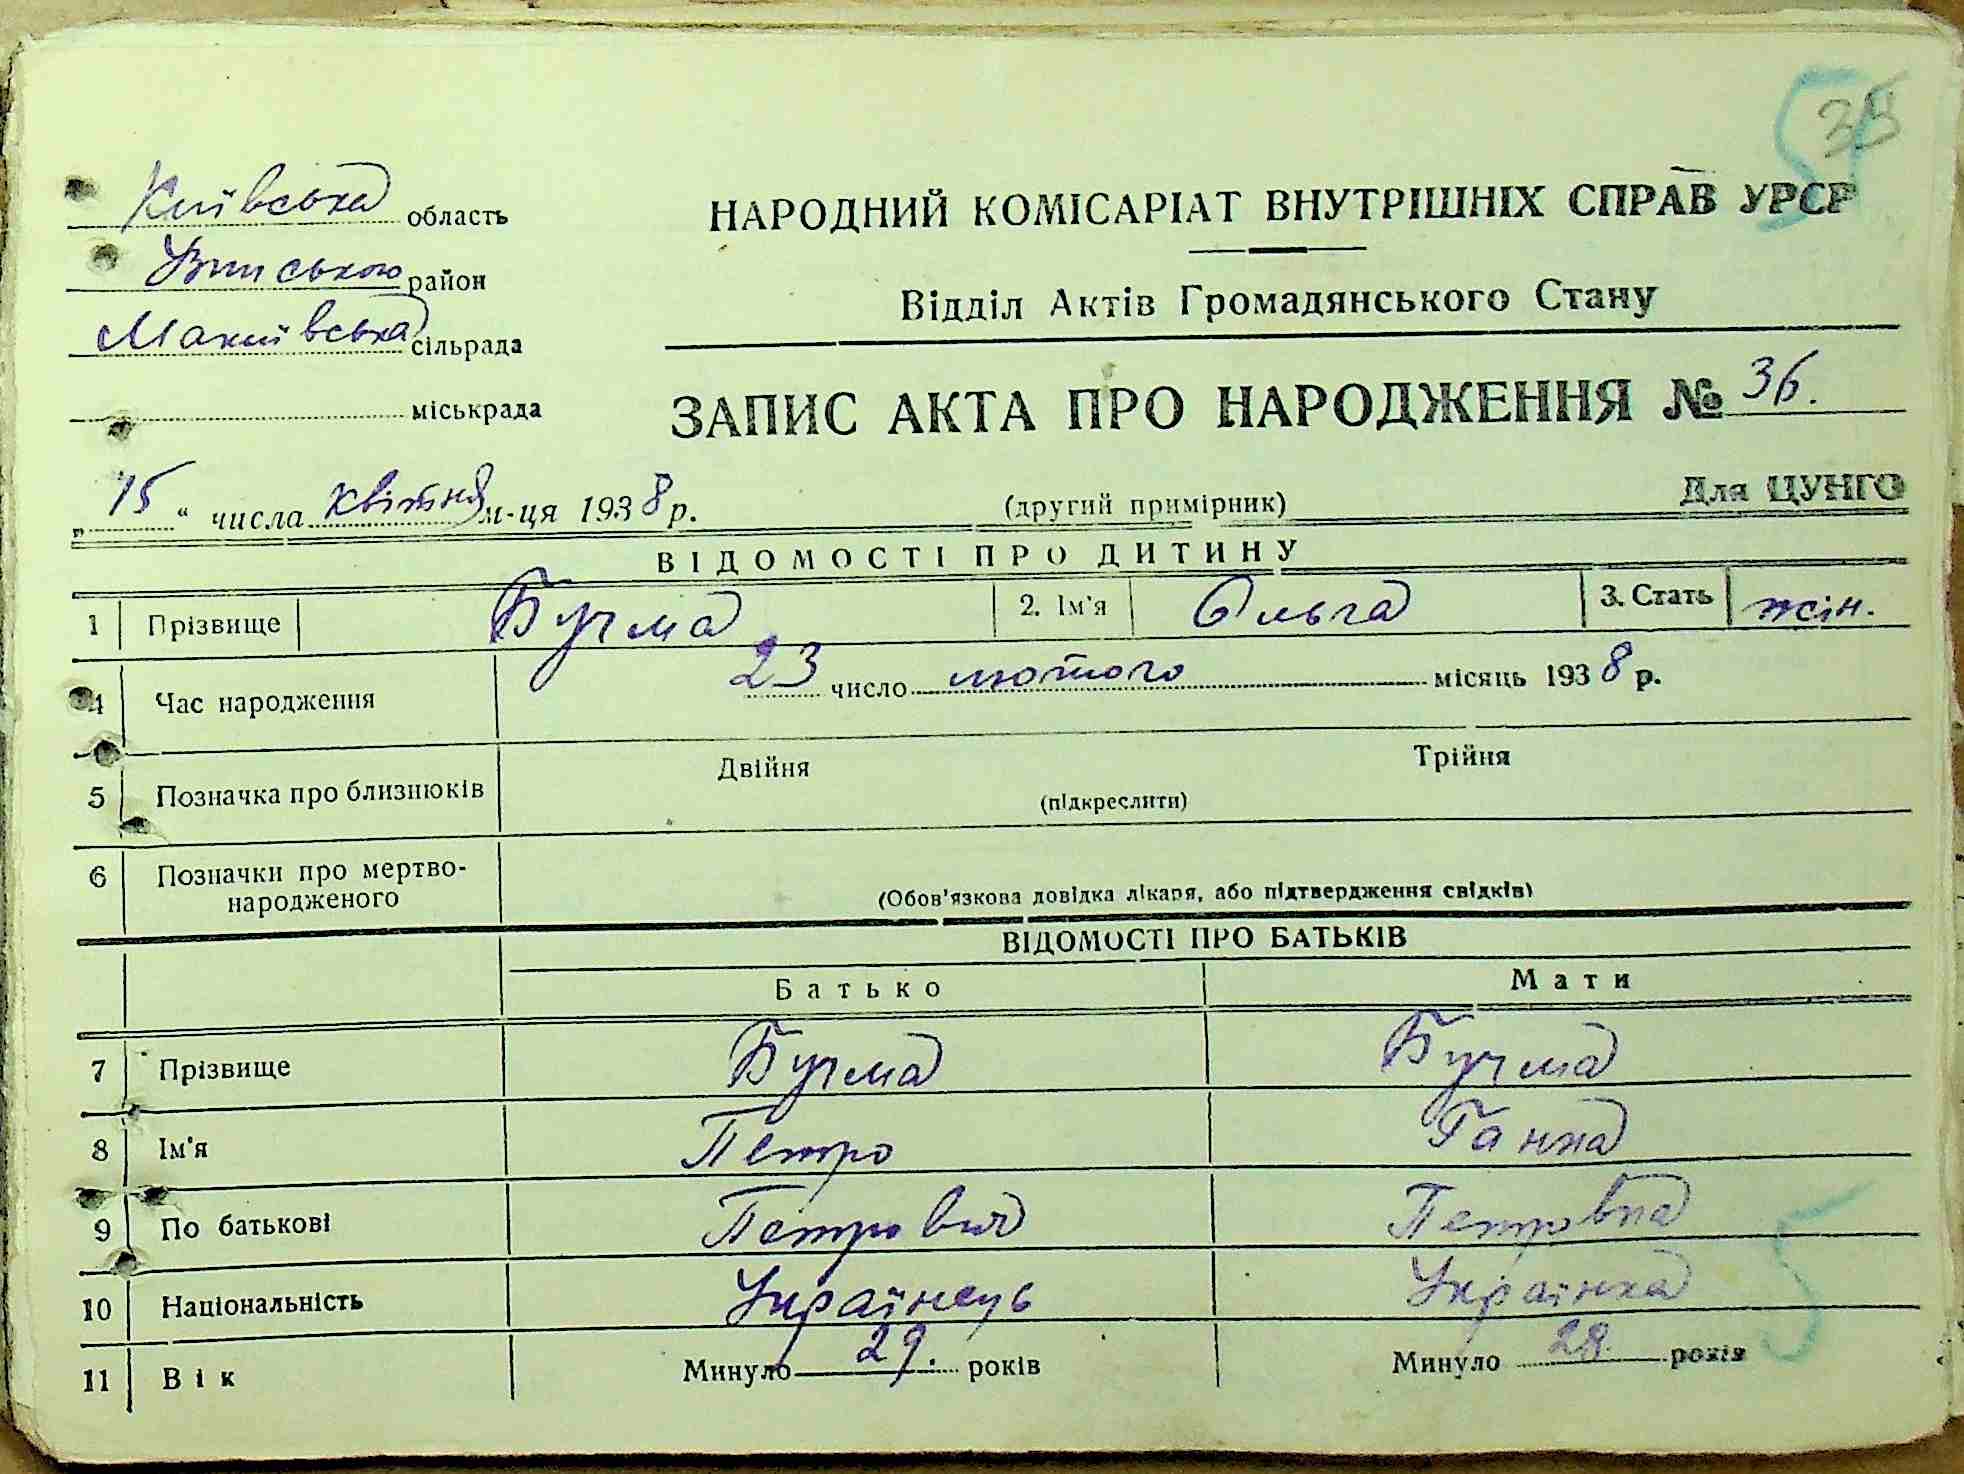 35
5
Київська область
НАРОДНИЙ КОМІСАРІАТ ВНУТРІШНІХ СПРАВ УРСР
район
Відділ Актів Громадянського Стану
Македівська сільрада
міськрада
ЗАПИС АКТА ПРО НАРОДЖЕННЯ № 36.
„15“ числа квітня м-ця 1938 р.
(другий примірник)
Для ЦУНГО
ВІДОМОСТІ ПРО ДИТИНУ
1 Прізвище Бучма 2. Ім'я Ольга 3. Стать жін.
4 Час народження 23 число лютого місяць 1938 р.
5 Позначка про близнюків Двійня Трійня
(підкреслити)
6 Позначки про мертво-
народженого
(Обов'язкова довідка лікаря, або підтвердження свідків)
ВІДОМОСТІ ПРО БАТЬКІВ
Батько Мати
7 Прізвище Бучма Бучма
8 Ім'я Петро Ганна
9 По батькові Петрович Петровна
10 Національність Українець Українка
5
11 Вік Минуло 29. років Минуло 28. років